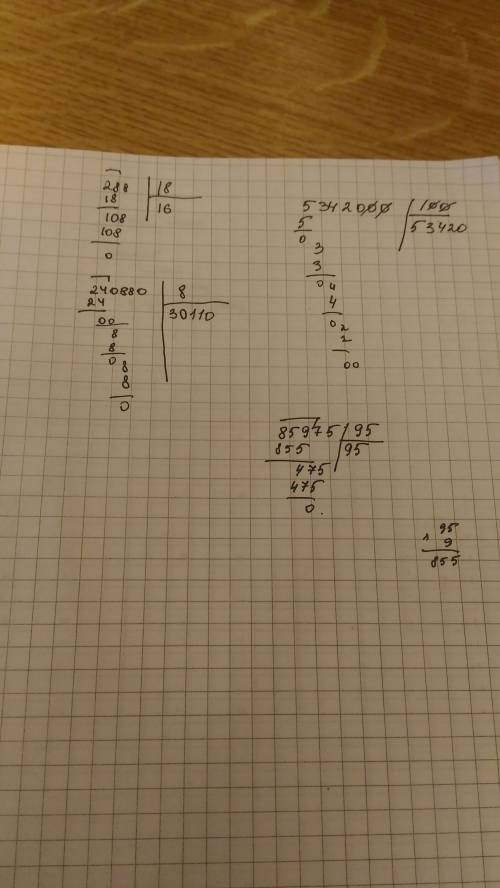 288 18
18 16
108
108
0
240880 8
24 30110
00
8
8
0 8
8
0
5342000 100
5 53420
0 3
3
0 4
4
0 2
2
00
85975 95
855 95
475
475
0.
95
× 9
855